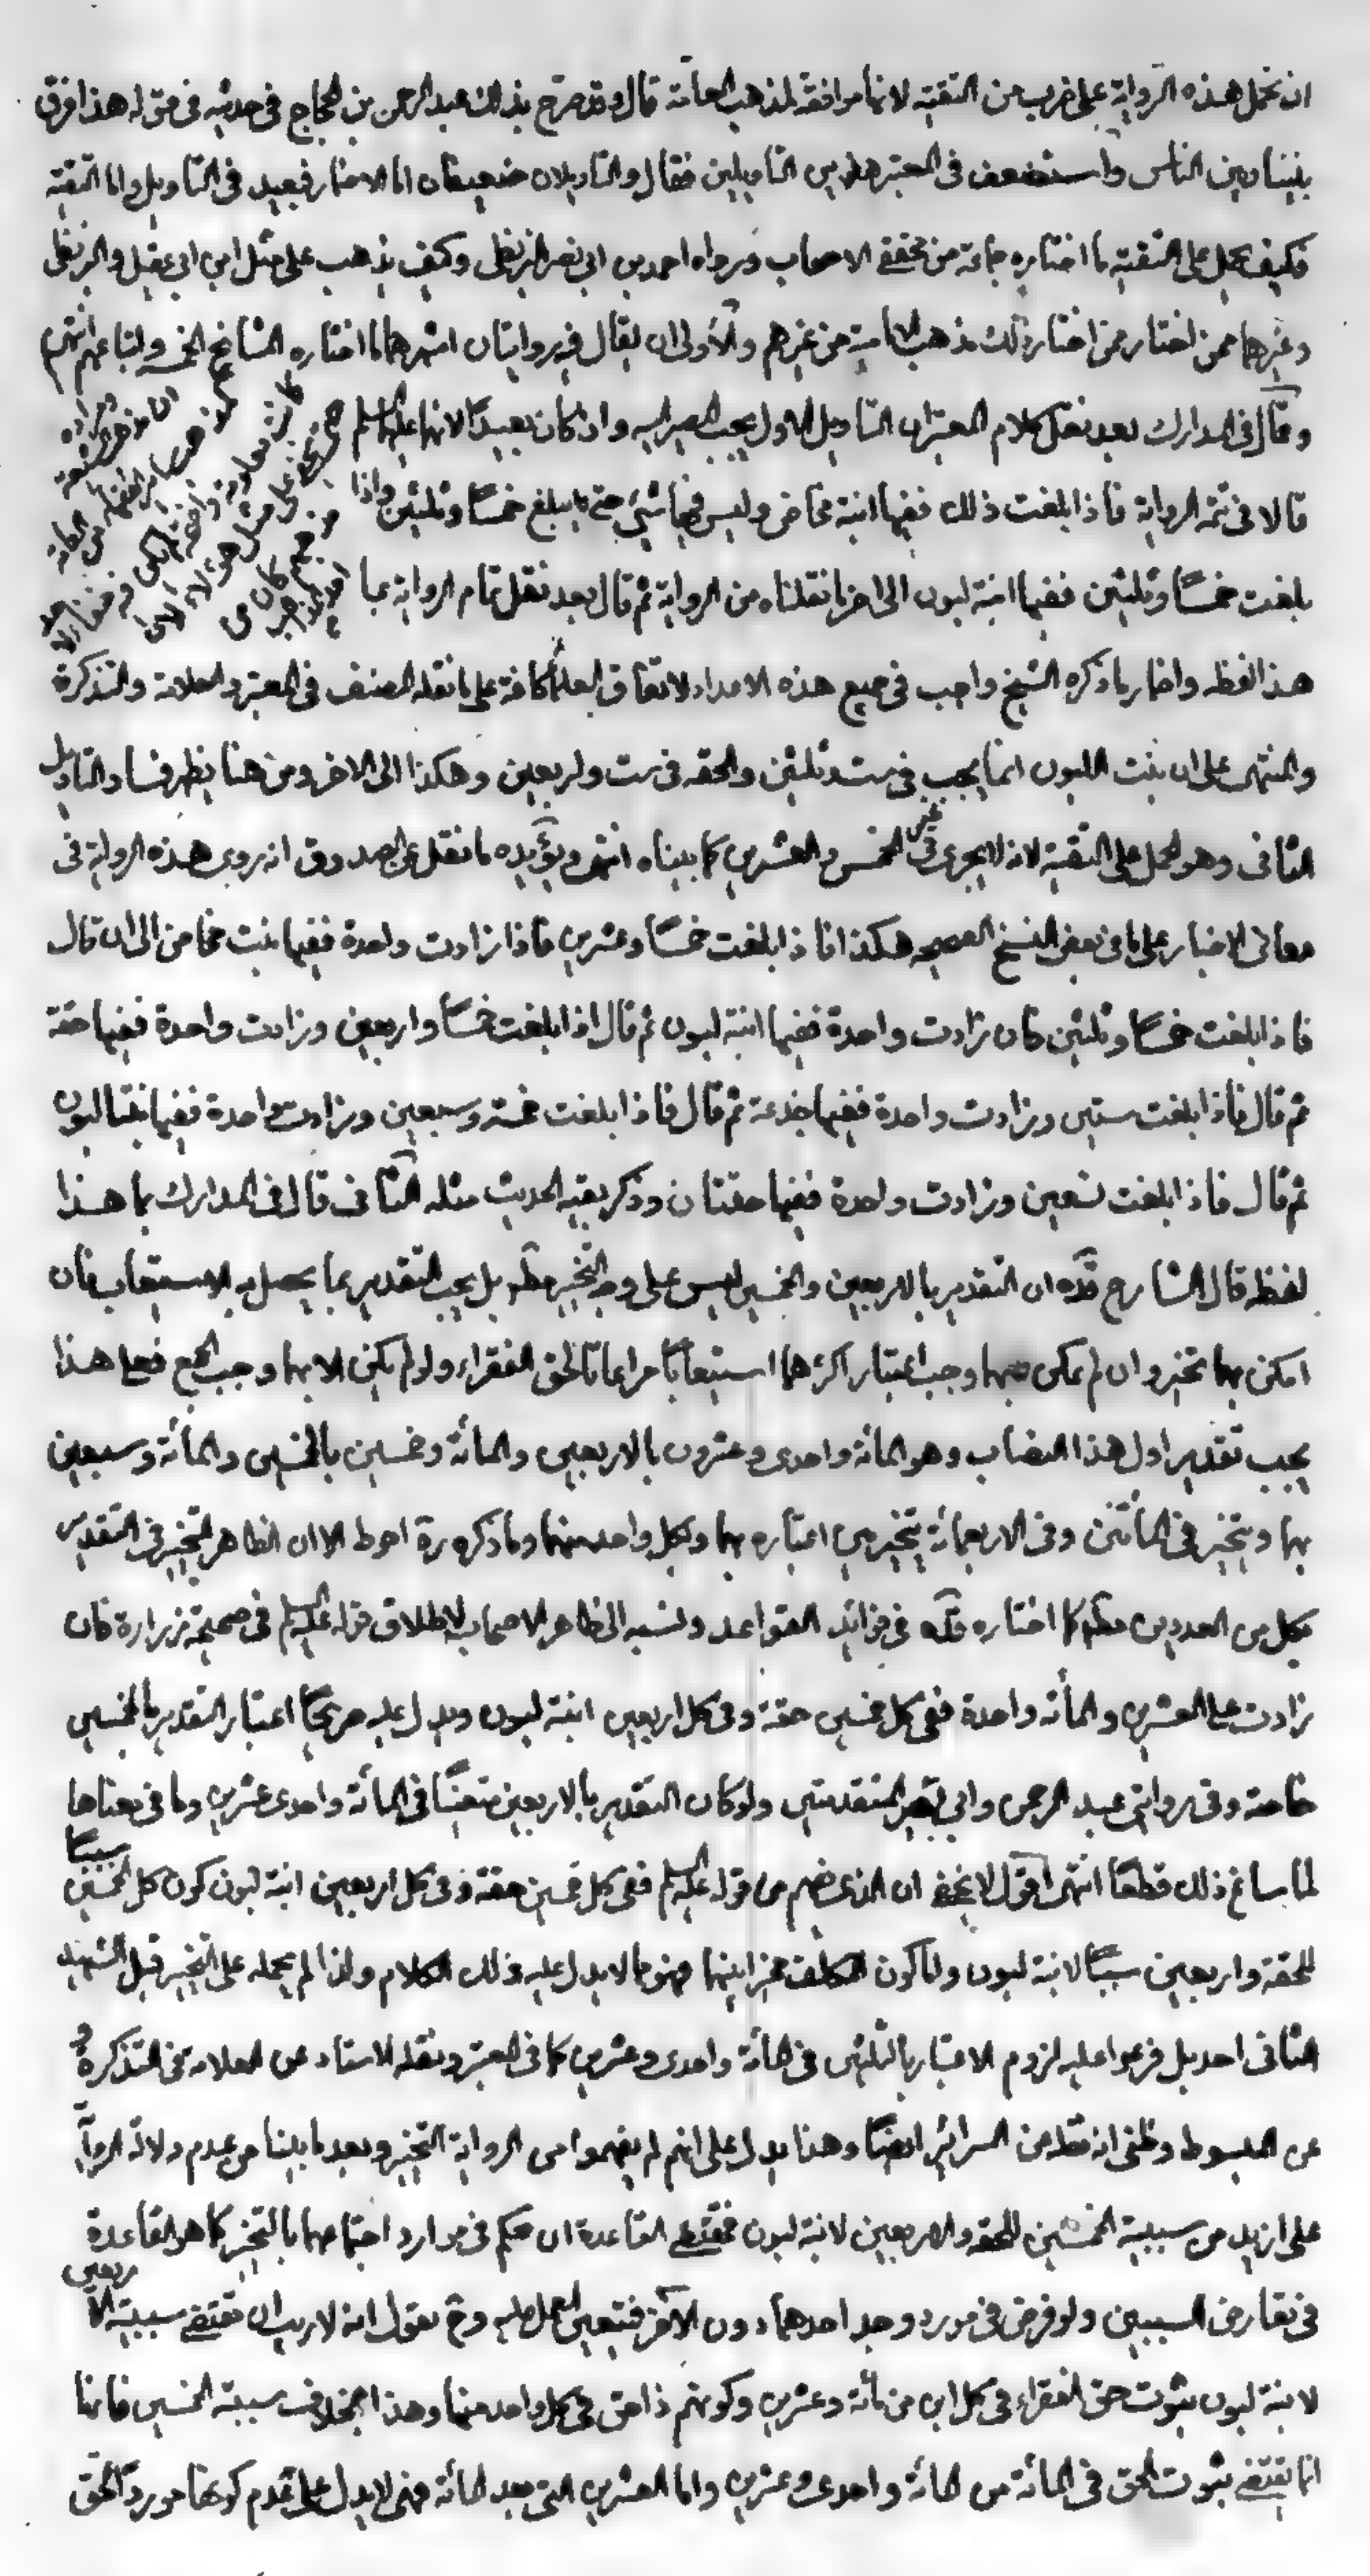 ان تحمل هذه الرواية على ضرب من التقية لانها موافقة لمذهب العامة قال وقد صرح بذلك عبد الرحمن بن الحجاج في حديثه في قوله هذا فرق
بيننا وبين الناس واستضعف في المعتبر هذين التأويلين فقال والتاويلان ضعيفان اما الاضمار فبعيد في التاويل واما التقية
فكيف يحمل على التقية ما اختاره جماعة من محققي الاصحاب ورواه احمد بن ابي نصر البزنطي وكيف يذهب على مثل ابن ابي عقيل والبزنطي
وغيرهما ممن اختار ذلك مذهب الامامية من غيرهم والأولى ان يقال فيه روايتان اشهرهما ما اختاره المشايخ الخمسة واتباعهم انتهى
وقال في المدارك بعد نقل كلام المعتبر ان التاويل الاول يجب المصير اليه وان كان بعيدا لانهما عليهما السلم
قالا في تتمة الرواية فاذا بلغت ذلك ففيها ابنة مخاض وليس فيها شيء حتى يبلغ خمسا وثلثين واذا
بلغت خمسا وثلثين ففيها ابنة لبون الى اخر ما نقلناه من الرواية ثم قال بعد نقل تمام الرواية بما
هذا لفظه واضمار ما ذكره الشيخ واجب في جميع هذه الاعداد لاتفاق العلماء كافة على ما نقله المصنف في المعتبر والعلامة والتذكرة
والمنتهى على ان بنت اللبون انما يجب في ست وثلثين والحقه في ست واربعين وهكذا الى الاخر ومن هنا يظهر فساد التاويل
الثاني وهو الحمل على التقية لانه لا يجرى في غير الخمس والعشرين كما بيناه انتهى ويؤيده ما نقل عن الصدوق انه روى هذه الرواية في
معاني الاخبار على ما في بعض النسخ الصحيحه هكذا فاذا بلغت خمسا وعشرين فاذا زادت واحدة ففيها بنت مخاض الى ان قال
فاذا بلغت خمسا وثلثين فان زادت واحدة ففيها ابنة لبون ثم قال اذا بلغت خمسا واربعين وزادت واحدة ففيها حقة
ثم قال فاذا بلغت ستين وزادت واحدة ففيها جذعة ثم قال فاذا بلغت خمسة وسبعين وزادت واحدة ففيها بنتا لبون
ثم قال فاذا بلغت تسعين وزادت واحدة ففيها حقتان وذكر بقية الحديث مثله الثاني قال في المدارك بما هذا
لفظه قال الشارح قده ان التقدير بالاربعين والخمسين ليس على وجه التخيير مط بل يجب التقدير بما يحصل به الاستيعاب فان
امكن بهما تخير وان لم يمكن بهما وجب اعتبار اكثرهما استيعابا مراعاتا لحق الفقراء ولو لم يكن الا بهما وجب الجمع فعلى هذا
يجب تقدير اول هذا النصاب وهو المائة واحدى وعشرون بالاربعين والمائة وخمسين بالخمسين والمائة وسبعين
بهما ويتخير في المأتين وفي الاربعمائة يتخير بين اعتباره بهما وبكل واحد منهما وما ذكره ره احوط الا ان الظاهر التخيير في التقدير
بكل من العددين مط كما اختاره قده في فوائد القواعد ونسبه الى ظاهر الاصحاب لاطلاق قوله عليه السلم في صحيحة زرارة فان
زادت على العشرين والمأة واحدة ففي كل خمسين حقة وفي كل اربعين ابنة لبون ويدل عليه صريحا اعتبار التقدير بالخمسين
خاصة وفي روايتي عبد الرحمن وابي بصير المتقدمتين ولو كان التقدير بالاربعين متعينا في المائة واحدى عشرين وما في معناها
لما ساغ ذلك قطعا انتهى اقول لا يخفى ان الذي يفهم من قوله عليه السلم ففي كل خمسين حقة وفي كل اربعين ابنة لبون كون كل خمسين سببا
للحقة واربعين سببا لابنة لبون واما كون المكلف مخيرا بينهما فهو مما لا يدل عليه ذلك الكلام ولذا لم يحمله على التخيير قبل الشهيد
الثاني احد بل فرعوا عليه لزوم الاعتبار بالثلثين في المائة واحدى وعشرين كما في المعتبر ونقله الاستاد عن العلامة في التذكرة و
عن المبسوط وظني انه نقله من السرائر ايضا وهذا يدل على انهم لم يفهموا من الرواية التخيير وبعد ما بينا من عدم دلالة الرواية
على ازيد من سببية الخمسين للحقه والاربعين لابنة لبون فمقتضى القاعدة ان يحكم في موارد اجتماعهما بالتخيير كما هو القاعدة
في تعارض السببين ولو فرض في مورد وجد احدهما دون الآخر فيتعين العمل عليه وح نقول انه لا ريب ان مقتضى سببية الاربعين
لابنة لبون ثبوت حق الفقراء في كل ابن من مائة وعشرين وكونهم ذا حق في كل واحد منها وهذا بخلاف سببية الخمسين فانها
انما يقتضى ثبوت الحق في المائة من المائة واحدى وعشرين واما العشرين التي بعد المائة فهى لا يدل على عدم كونها مورد الحق